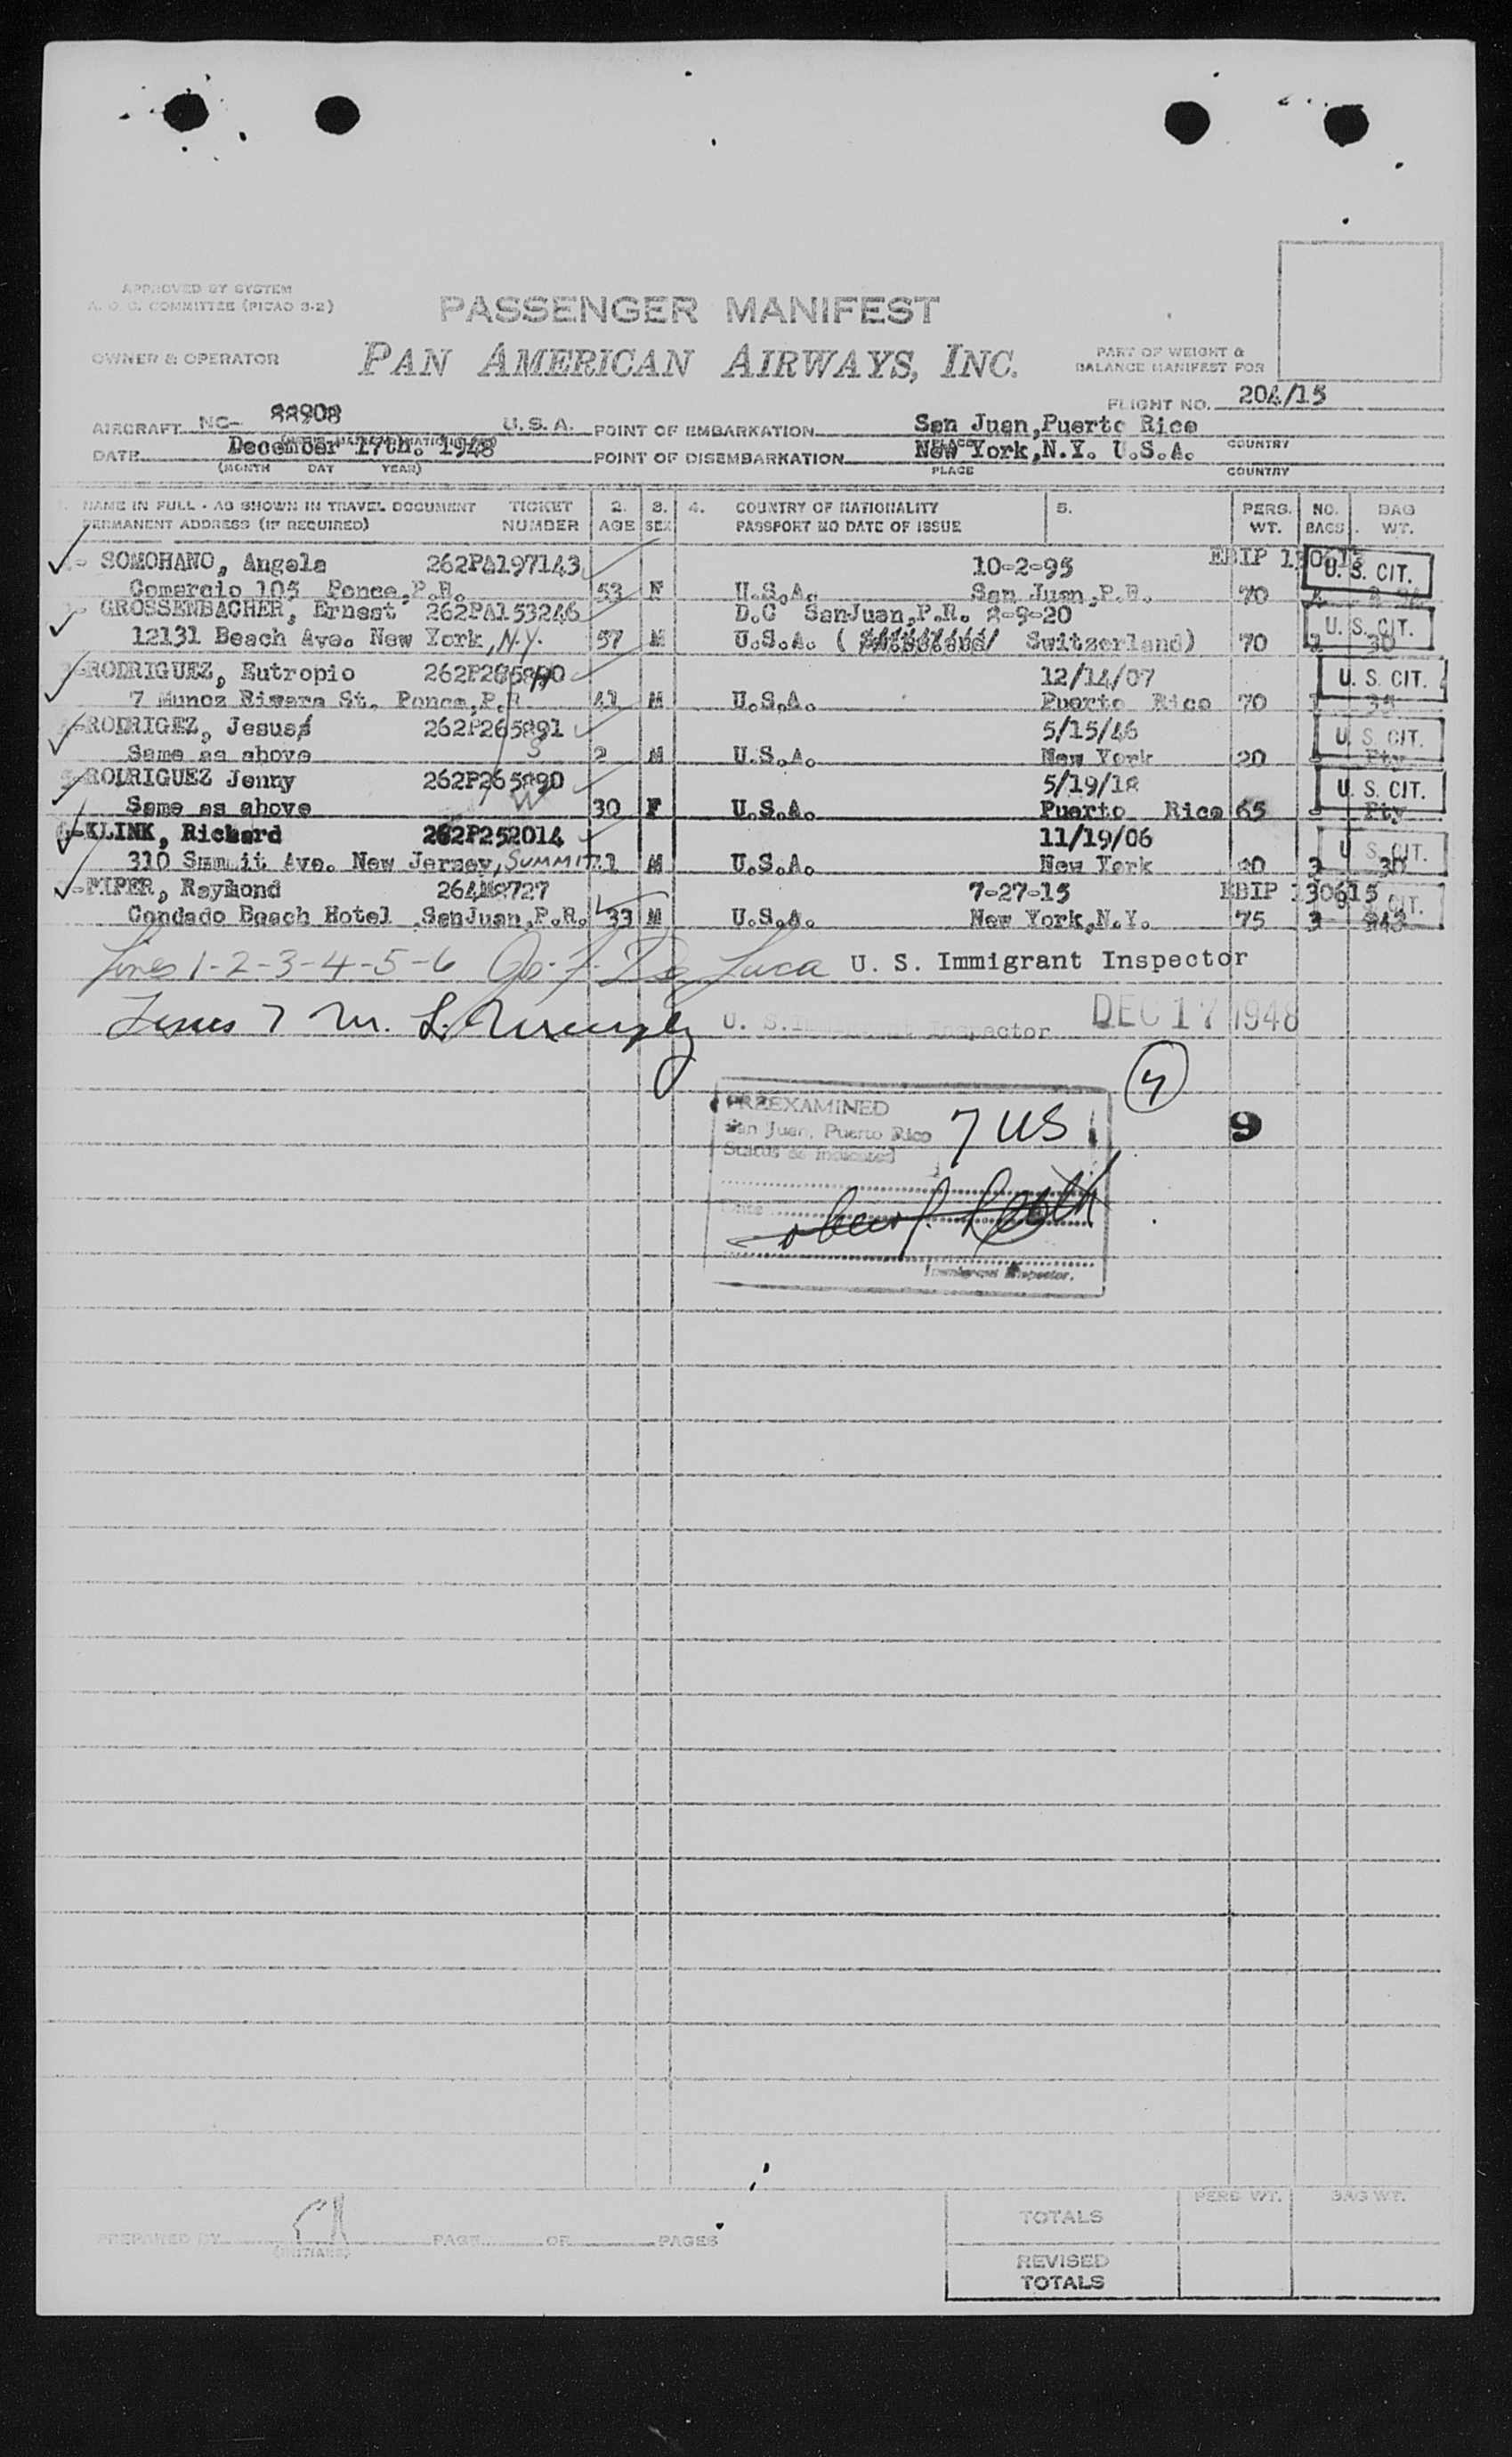 APPROVED BY SYSTEM
A. O. C. COMMITTEE (PICAO 3-2)
PASSENGER MANIFEST
OWNER & OPERATOR
PAN AMERICAN AIRWAYS, INC.
PART OF WEIGHT &
BALANCE MANIFEST FOR
FLIGHT NO. 204/15
AIRCRAFT NC- 88908 U.S.A. POINT OF EMBARKATION San Juan,Puerto Rico
PLACE COUNTRY
DATE December 17th. 1948 POINT OF DISEMBARKATION New York,N.Y. U.S.A.
(MONTH DAY YEAR) PLACE COUNTRY
NAME IN FULL - AS SHOWN IN TRAVEL DOCUMENT TICKET 2. 3. 4. COUNTRY OF NATIONALITY 5. PERS. NO. BAG
PERMANENT ADDRESS (IF REQUIRED) NUMBER AGE SEX PASSPORT NO DATE OF ISSUE WT. BAGS WT.
SOMOHANO, Angela 262PA197143 10-2-95 EBIP U. S. CIT.
Comercio 105 Ponce,P.R. 53 F U.S.A. San Juan,P.R. 70
GROSSENBACHER, Ernest 262PA153246 D.C SanJuan,P.R. 2-9-20 U. S. CIT.
12131 Beach Ave. New York, N.Y. 57 M U.S.A. ( Switzerland) 70 30
RODRIGUEZ, Eutropio 12/14/07 U. S. CIT.
7 Munoz Rivera St. Ponce,P.R. 41 M U.S.A. Puerto Rico 70 35
RODRIGEZ, Jesus 262P265891 5/15/46 U. S. CIT.
Same as above 2 M U.S.A. New York 20 Pty
RODRIGUEZ Jenny 262P265890 5/19/18 U. S. CIT.
Same as above 30 F U.S.A. Puerto Rico 65 Pty
KLINK, Richard 262P252014 11/19/06 U. S. CIT.
310 Summit Ave. New Jersey, SUMMIT M U.S.A. New York 30
PIPER, Raymond 7-27-15 EBIP 130615 CIT.
Condado Beach Hotel SanJuan,P.R. 33 M U.S.A. New York,N.Y. 75 3
Lines 1-2-3-4-5-6 De Luca U. S. Immigrant Inspector
Lines 7 M. L. U. S. Immigrant Inspector DEC 17 1948
PREEXAMINED
San Juan, Puerto Rico 7 US 9
Status as indicated
Date
Immigrant Inspector.
PREPARED BY (INITIALS) PAGE OF PAGES
PERS WT. BAG WT.
TOTALS
REVISED
TOTALS